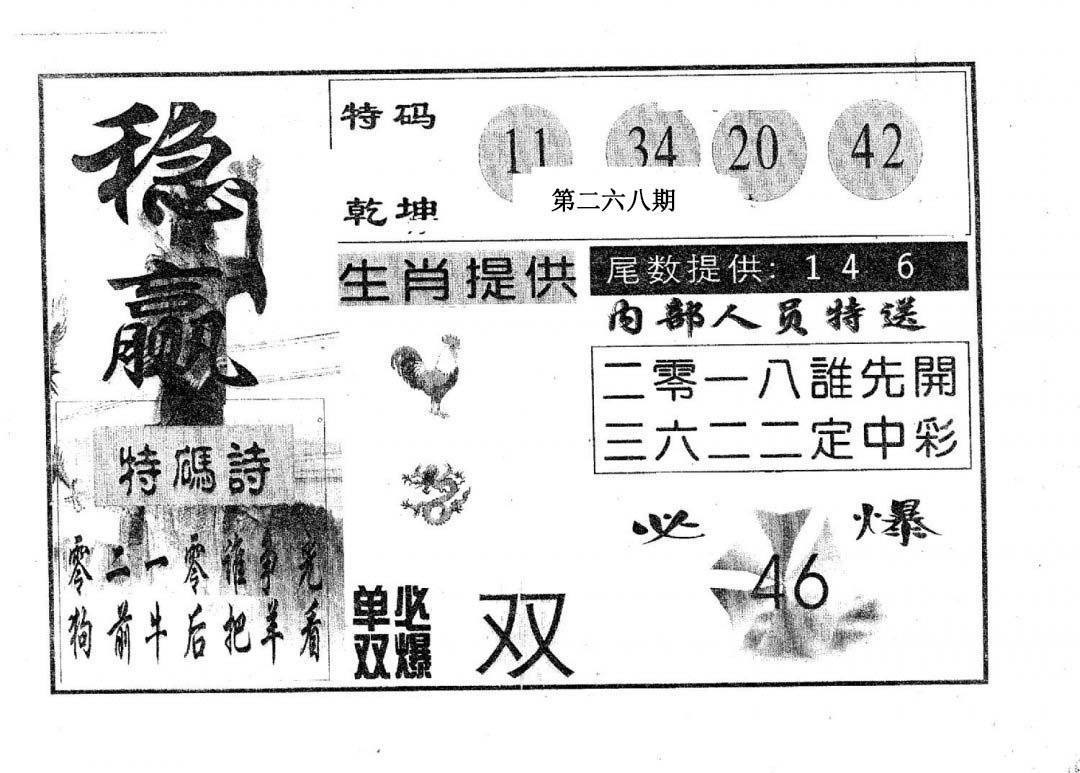 稳赢
特码
乾坤
11 34 20 42
第二六八期
生肖提供
尾数提供: 1 4 6
内部人员特送
二零一八誰先開
三六二二定中彩
特碼詩
零二一零谁争光
狗前牛后把羊看
必爆
46
单双必爆
双